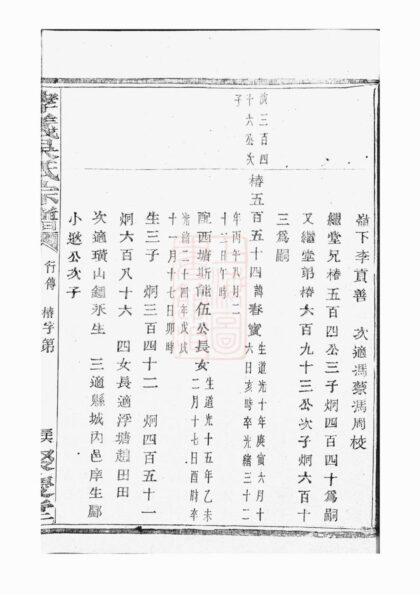 嶺下李貞善　次適馮蔡馮周校
繼堂兄椿五百四公三子炯四百四十爲嗣
又繼堂弟椿六百九十三公次子炯六百十
三爲嗣
演三百四
十六公次
子
椿五百五十四
春寳
生道光十年庚寅六月十
六日亥時卒光緒三十二
年丙午八月二
十二日午時
配西塘斯能伍公長女
生道光十五年乙未
二月十七日酉時卒
光緒二十四年戊戌
十一月十七日卯時
生三子　炯三百四十二　炯四百五十一
炯六百八十六　四女長適浮塘趙田田
次適璜山鍾永生　三適縣城內邑庠生酈
小　公次子
氏宗譜
行傳　椿字第